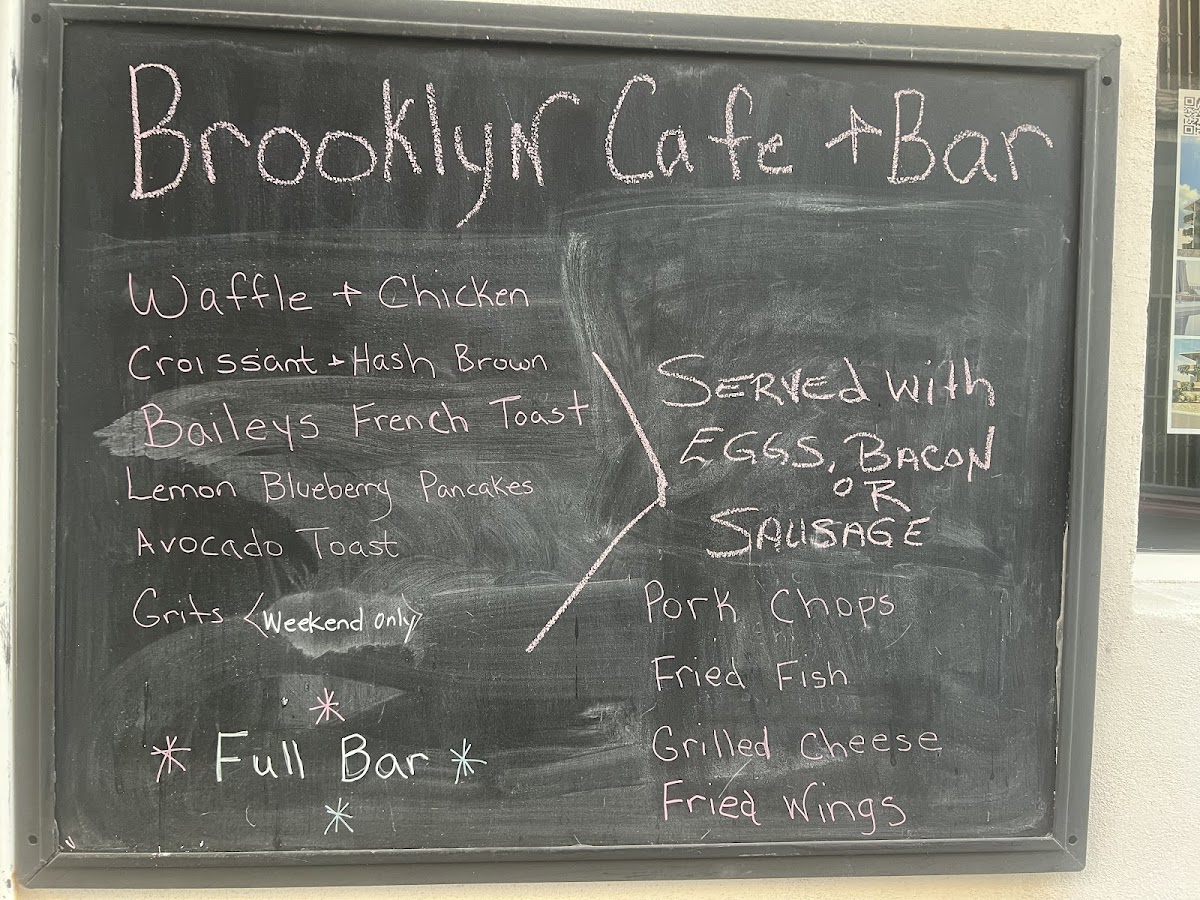 Brooklyn Cafe + Bar
Waffle + Chicken
Croissant + Hash Brown
Baileys French Toast
Lemon Blueberry Pancakes
Avocado Toast
Grits <Weekend only>
SERVED with
EGGS, BACON
OR
SAUSAGE
Pork Chops
Fried Fish
Grilled Cheese
Fried Wings
* Full Bar *